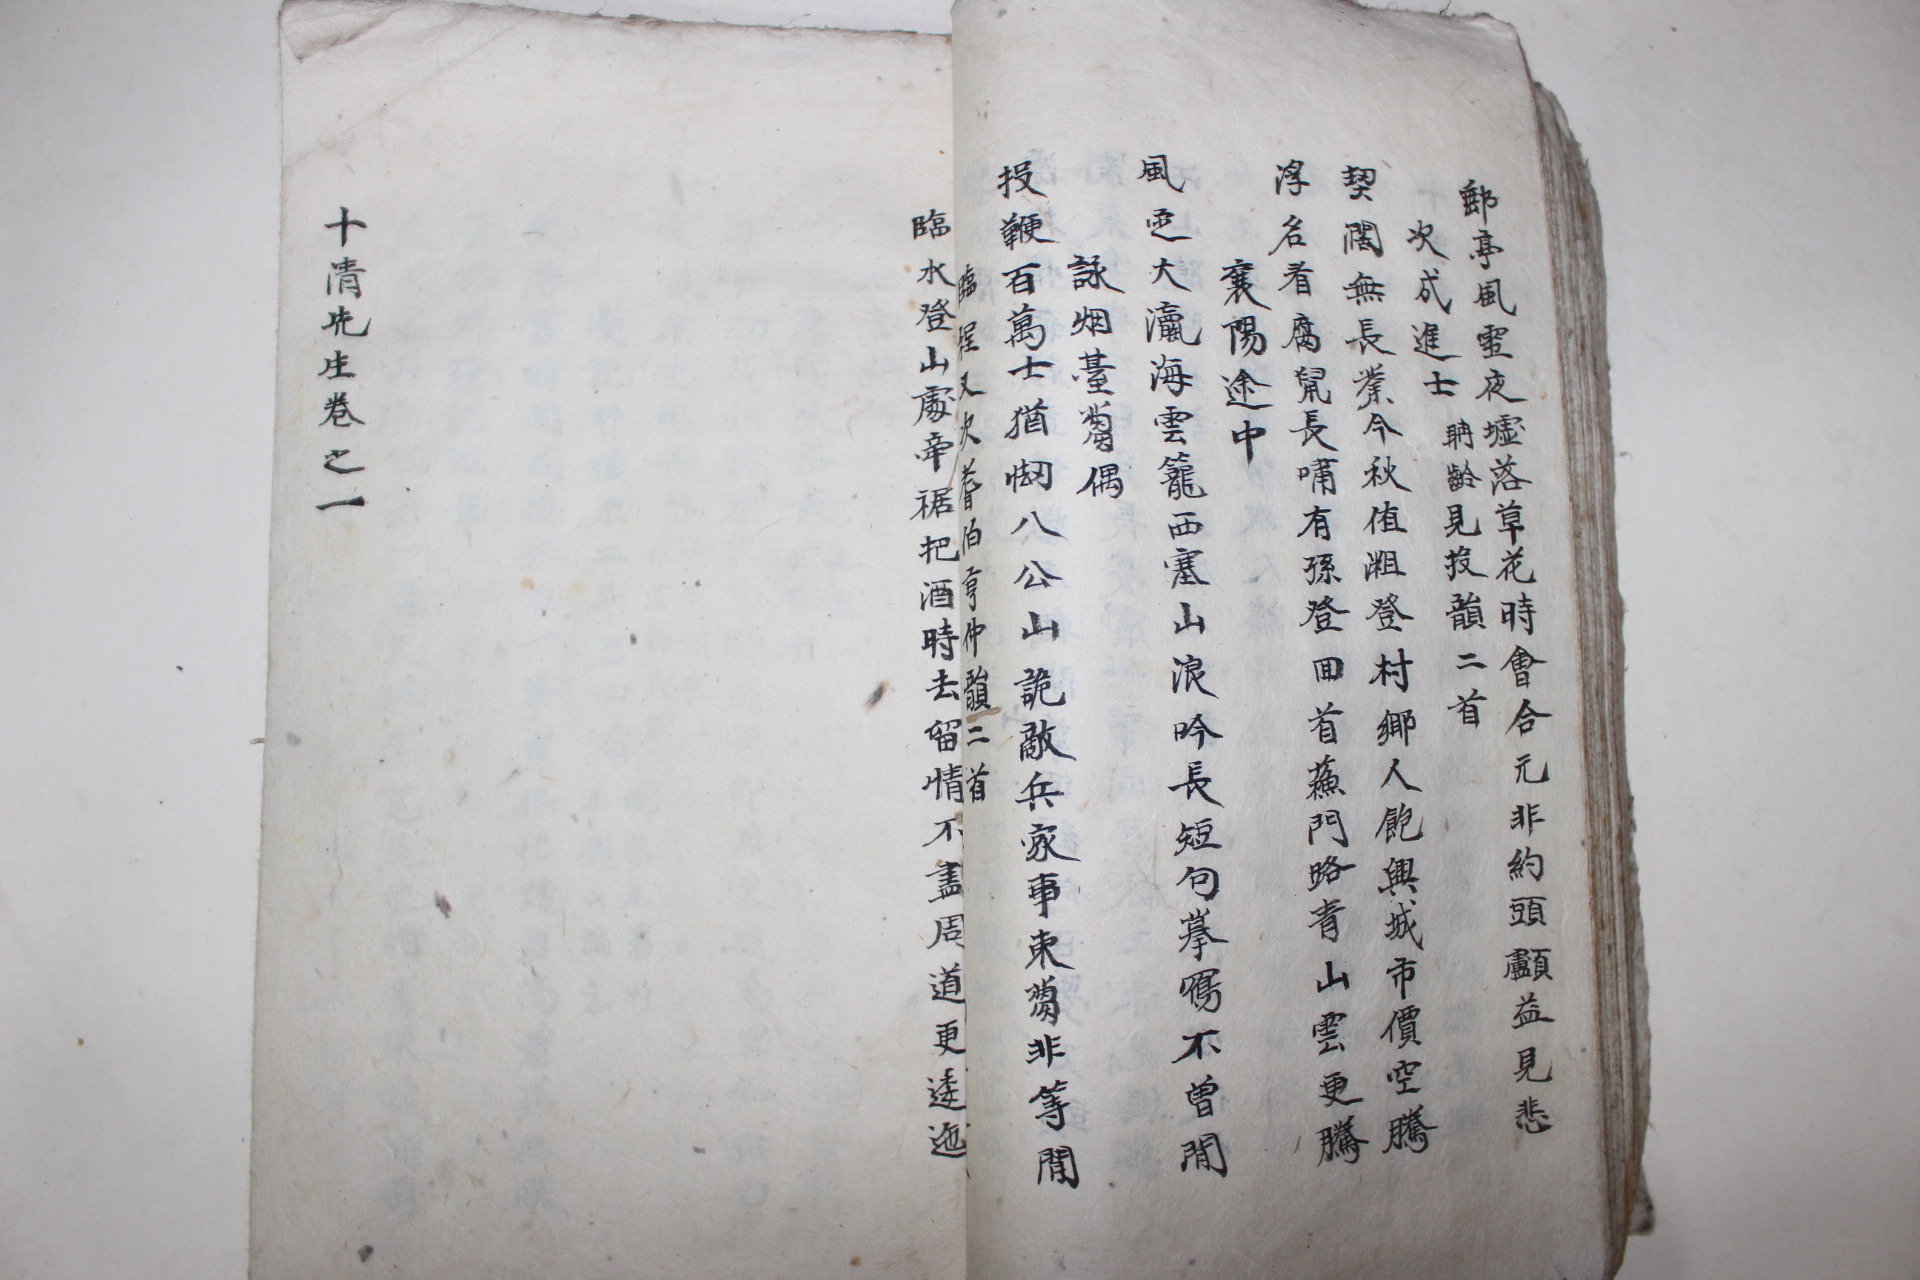 郵亭風雪夜墟落草花時會合元非約頭顱益見悲
次成進士聃齡見投韻二首
契闊無長業今秋值沮登村鄉人飽興城市價空騰
浮名看腐鼠長嘯有孫登回首蘇門路青山雲更騰
襄陽途中
風色大瀛海雲籠西塞山浪吟長短句摹寫不曾閒
詠烟臺蒭偶
投鞭百萬士猶㤼八公山詭敵兵家事束蒭非等閒
臨程又次耆伯亨仲韻二首
臨水登山處牽裾把酒時去留情不盡周道更逶迤
十清先生卷之一